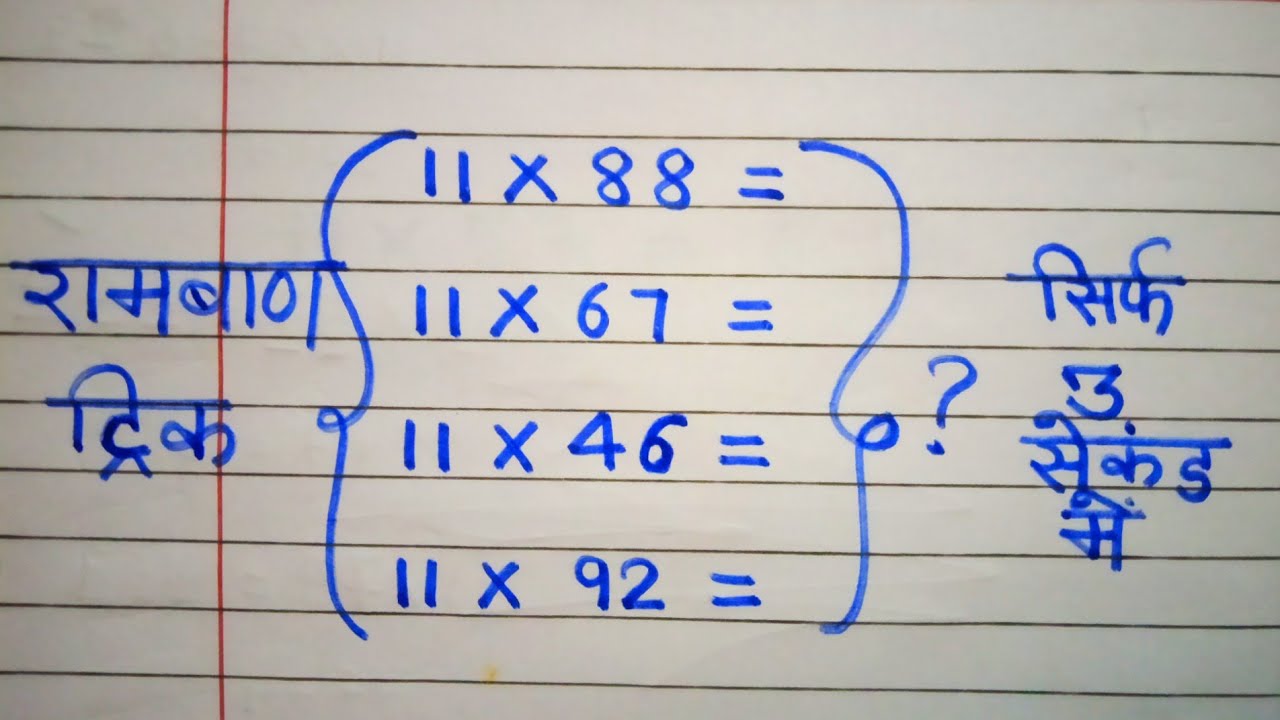 रामबाण
ट्रिक
11 × 88 =
11 × 67 =
11 × 46 =
11 × 92 =
?
सिर्फ
3
सेकंड
में